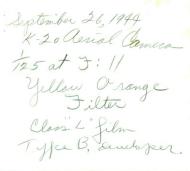 September 26, 1944
K-20 Aerial Camera
1/125 at F:11
Yellow Orange
Filter
Class "L" film
Type B, Developer.